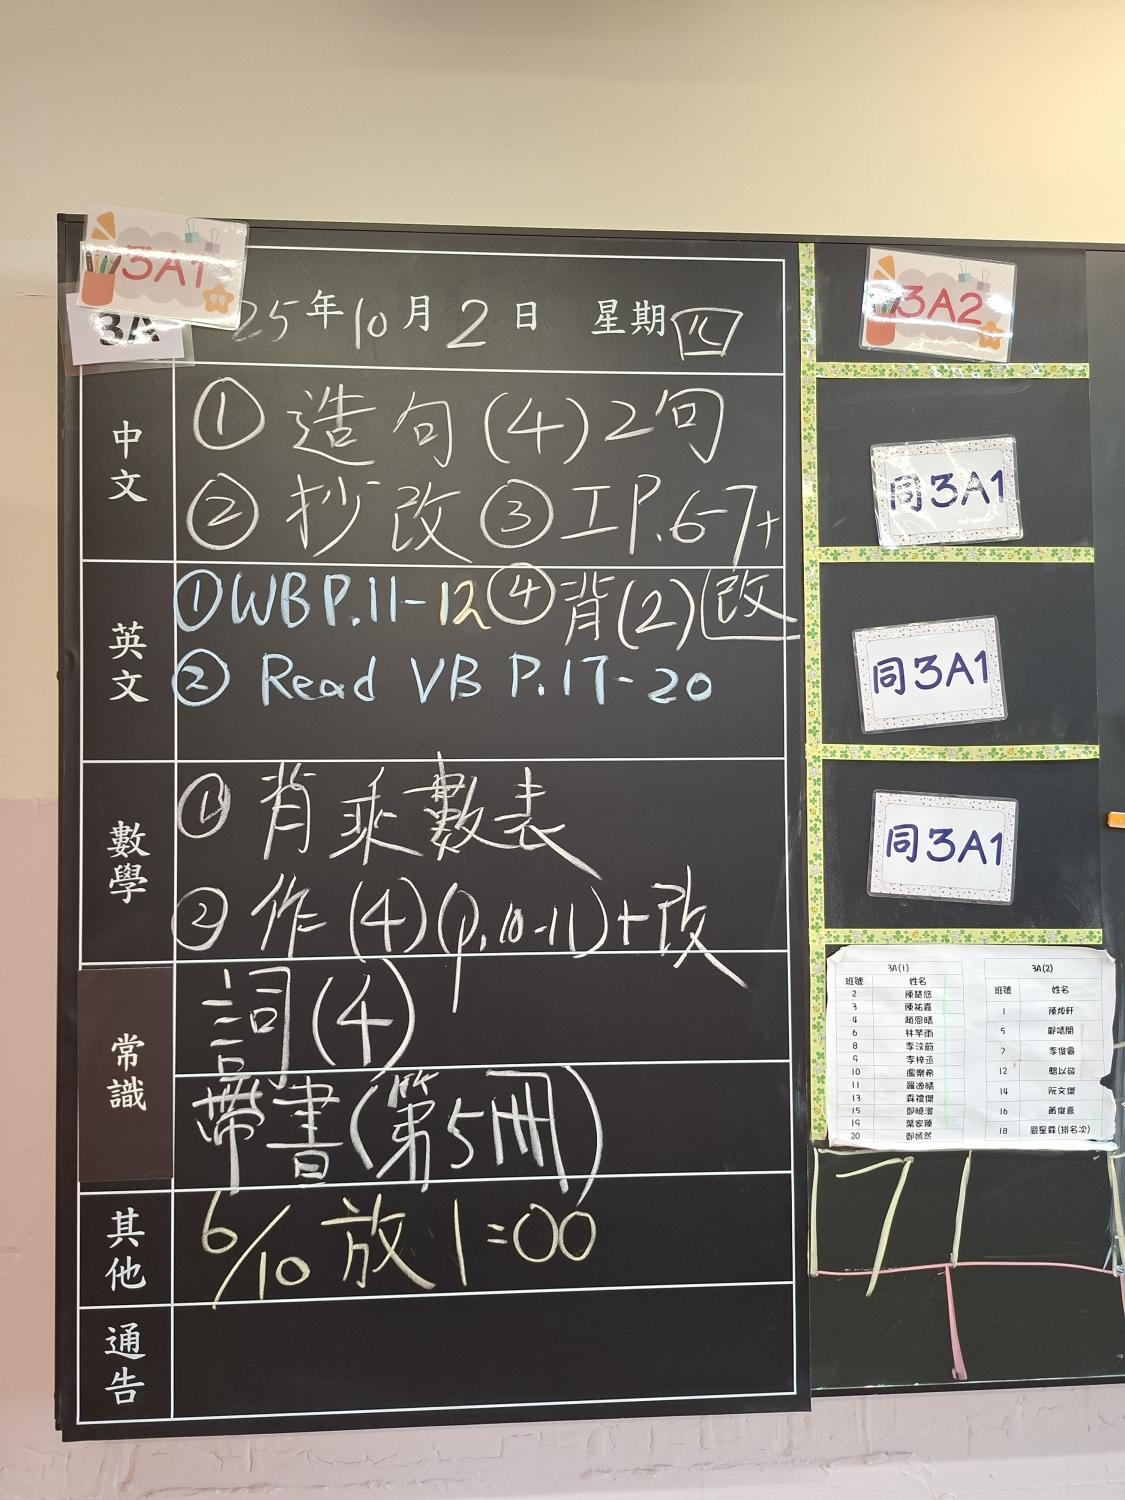 3A1
3A
25年10月2日 星期四
中文
① 造句(4)2句
② 抄改 ③ 工P.6-7+
④背(2)改
英文
①WBP.11-12
② Read VB P.17-20
數學
① 背乘數表
② 作(4)(p.10-11)+改
常識
詞(4)
帶書(第5冊)
其他
6/10 放 1:00
通告
3A2
同3A1
同3A1
同3A1
3A(1)
班號 姓名
2 陳慧悠
3 陳祐嘉
4 趙恩晴
6 林芊雨
8 李汶蔚
9 李梓丞
10 盧樂希
11 羅逸晴
13 森禮傑
15
19 葉家臻
20
3A(2)
班號 姓名
1 陳焯軒
5
7 李俊睿
12 駱以敬
14 阮文傑
16 黃俊熹
18 嚴星霖(排名次)
7